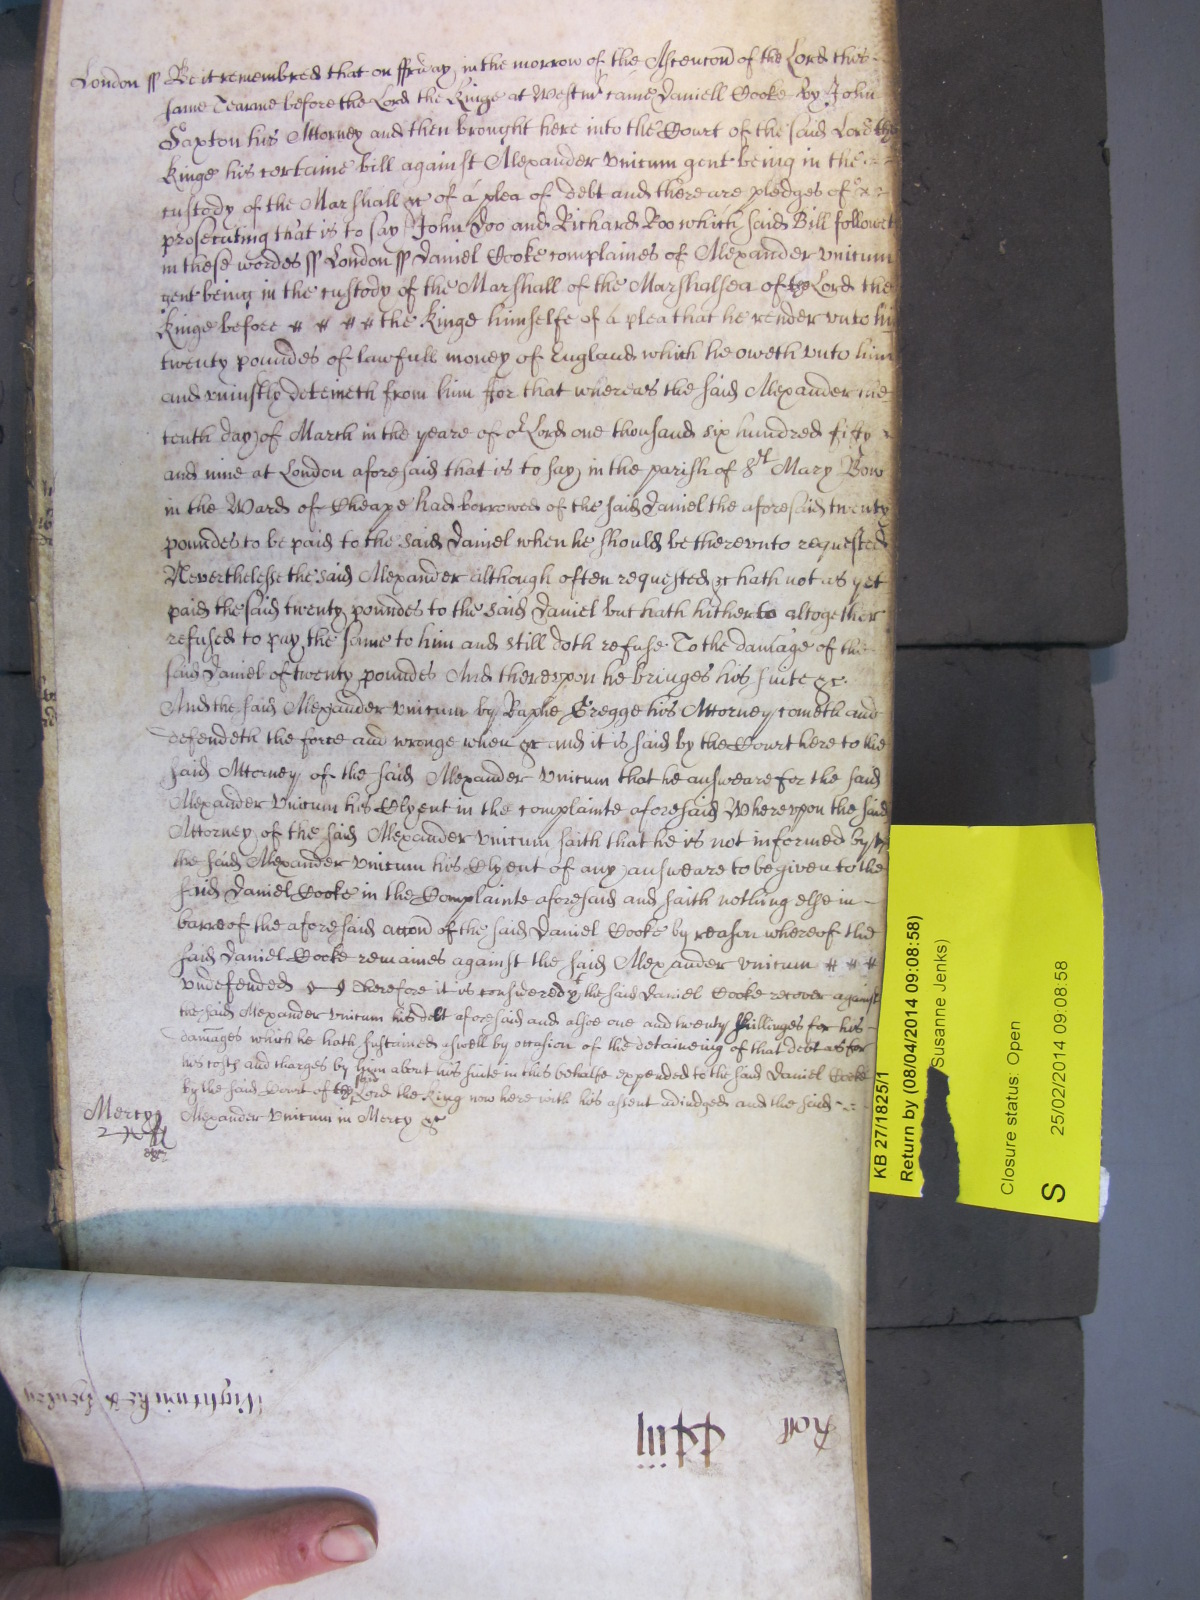 London ss Be it remembred that on ffryday in the morrow of the Ascencōn of the Lord this
same Tearme before the Lord the Kinge at Westmr came Daniell Cooke by John
Saxton his Attorney and then brought here into the Court of the said Lord the
Kinge his certaine bill against Alexander Vnicum gent being in the
custody of the Marshall &c of a plea of debt and there are pledges of
prosecuting that is to say John Doo and Richard Roo which said Bill followeth
in these wordes ss London ss Daniel Cooke complaines of Alexander Vnicum
gent being in the custody of the Marshall of the Marshalsea of the Lord the
Kinge before # # # # the Kinge himselfe of a plea that he render vnto him
twenty poundes of lawfull money of England which he oweth vnto him
and vniustly deteineth from him ffor that whereas the said Alexander the
tenth day of March in the yeare of or Lord one thousand six hundred fifty
and nine at London aforesaid that is to say in the parish of St Mary Bow
in the Ward of Cheape had borrowed of the said Daniel the aforesaid twenty
poundes to be paid to the said Daniel when he should be therevnto requested
Neverthelesse the said Alexander although often requested &c hath not as yet
paid the said twenty poundes to the said Daniel but hath hitherto altogether
refused to pay the same to him and still doth refuse To the damage of the
said Daniel of twenty poundes And therevpon he bringes his suite &c.
And the said Alexander Vnicum by Raphe Gregge his Attorney cometh and
defendeth the force and wronge when &c and it is said by the Court here to the
said Attorney of the said Alexander Vnicum that he answeare for the said
Alexander Vnicum his Clyent in the complainte aforesaid Wherevpon the said
Attorney of the said Alexander Vnicum saith that he is not informed by
the said Alexander Vnicum his Clyent of any answeare to be given to the
said Daniel Cooke in the Complainte aforesaid and saith nothing else in
barre of the aforesaid accōn of the said Daniel Cooke by reason whereof the
said Daniel Cooke remaines against the said Alexander Vnicum # # #
vndefended Therefore it is considered yt the said Daniel Cooke recover against
the said Alexander Vnicum his debt aforesaid and alsoe one and twenty shillinges for his
damages which he hath susteined aswell by occasion of the detaineing of that debt as for
his costs and charges by him about his suite in this behalfe expended to the said Daniel Cooke
by the said Court of the said Lord the King now here with his assent adiudged and the said
Mercy Alexander Vnicum in Mercy &c
KB 27/1825/1
Return by (08/04/2014 09:08:58)
Susanne Jenks)
Closure status: Open
S 25/02/2014 09:08:58
Roll